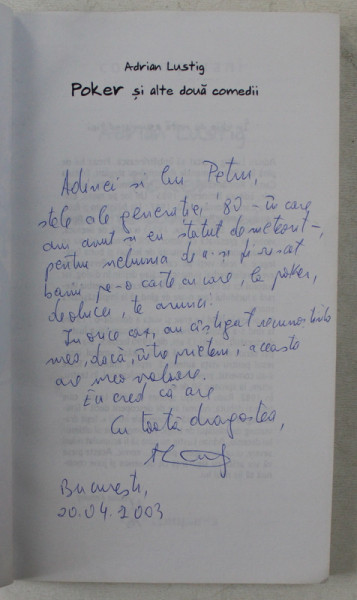 Adrian Lustig
Poker și alte două comedii
Adinei și lui Petru,
stele ale generației '80 – în care
am avut și eu statut de meteorit –,
pentru nebunia de a-și fi riscat
banii pe-o carte cu care, la poker,
de obicei, te arunci.
În orice caz, au câștigat recunoștința
mea, dacă, între prieteni, aceasta
are vreo valoare.
Eu cred că are
Cu toată dragostea,
București,
20.04.2003